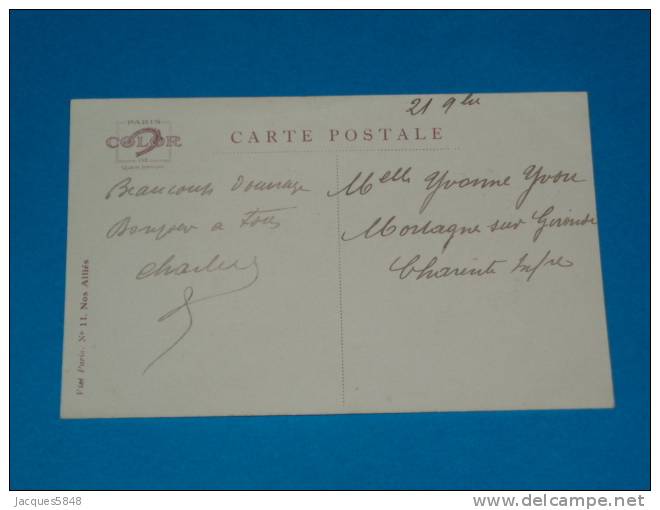 21 9bre
PARIS
COLOR
CARTE POSTALE
Beaucoup d'ouvrage
Bonjour a tous
Charles
Melle Yvonne Yvon
Mortagne sur Gironde
Charente Infre
Visé Paris. No 11. Nos Alliés
Jacques5848
delcampe.net